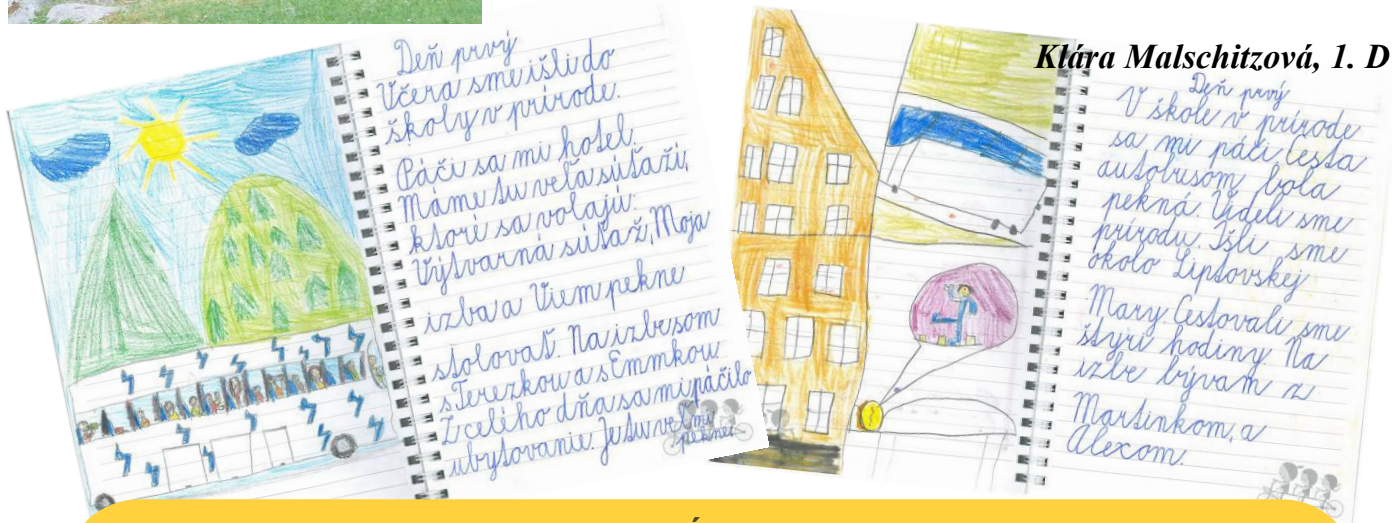 Klára Malschitzová, 1. D
Deň prvý
Včera sme išli do
školy v prírode.
Páči sa mi hotel.
Máme tu veľa súťaží,
ktoré sa volajú:
Výtvarná súťaž, Moja
izba a Viem pekne
stolovať. Na izbe som
s Terezkou a s Emmkou.
Z celého dňa sa mi páčilo
ubytovanie. Je tu veľmi
pekne.
Deň prvý
V škole v prírode
sa mi páči. Cesta
autobusom bola
pekná. Videli sme
prírodu. Išli sme
okolo Liptovskej
Mary. Cestovali sme
štyri hodiny. Na
izbe bývam z
Martinkom, a
Alexom.